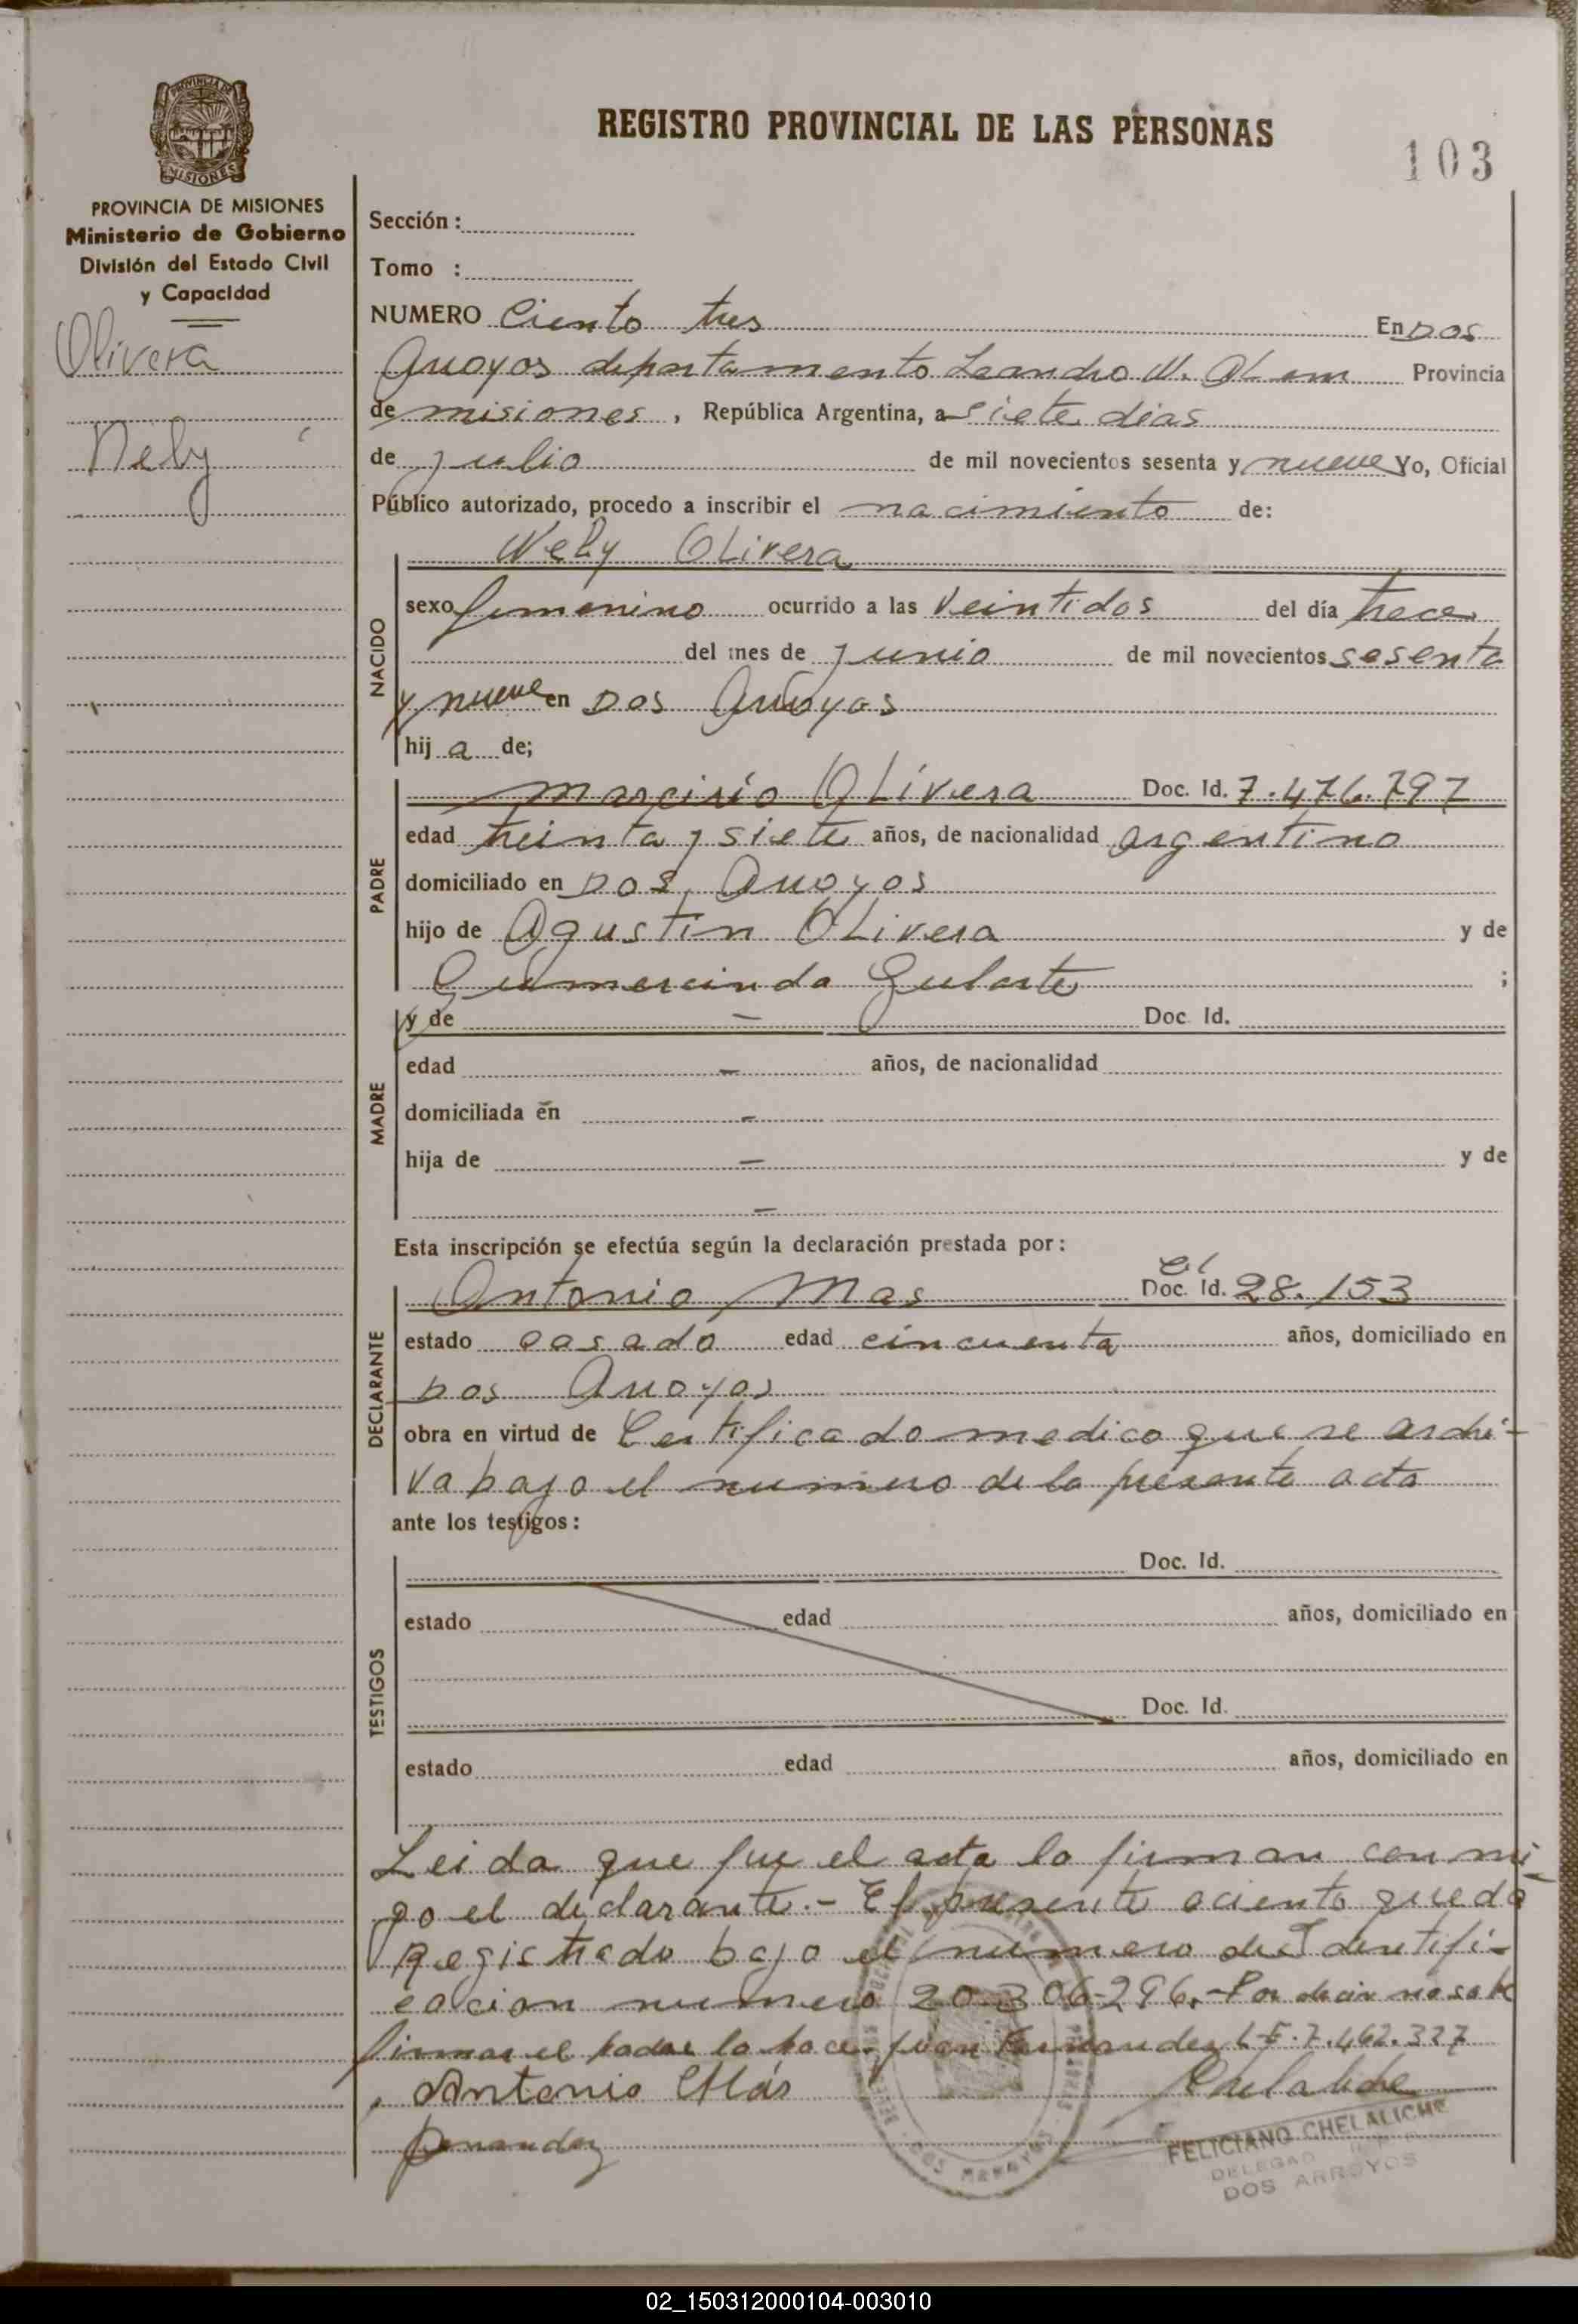 REGISTRO PROVINCIAL DE LAS PERSONAS
103
PROVINCIA DE MISIONES
Ministerio de Gobierno
División del Estado Civil
y Capacidad
Olivera
Nely
Sección :
Tomo :
NUMERO Ciento tres En Dos
Arroyos departamento Leandro N. Alem Provincia
de misiones, República Argentina, a siete dias
de Julio de mil novecientos sesenta y nueve Yo, Oficial
Público autorizado, procedo a inscribir el nacimiento de:
Nely Olivera
NACIDO
sexo femenino ocurrido a las veintidos del día trece
del mes de Junio de mil novecientos sesenta
y nueve en Dos Arroyos
hij a de;
PADRE
marcirio Olivera Doc. Id. 7.476.797
edad treinta y siete años, de nacionalidad argentino
domiciliado en Dos Arroyos
hijo de Agustin Olivera y de
Gumercinda Gularte ;
MADRE
y de — Doc. Id.
edad — años, de nacionalidad
domiciliada en —
hija de — y de
—
Esta inscripción se efectúa según la declaración prestada por:
DECLARANTE
Antonio Mas CI Doc. Id. 28.153
estado casado edad cincuenta años, domiciliado en
Dos Arroyos
obra en virtud de Certificado medico que se archi-
va bajo el numero de la presente acta
ante los testigos:
TESTIGOS
Doc. Id.
estado edad años, domiciliado en
Doc. Id.
estado edad años, domiciliado en
Leida que fue el acta la firman conmi-
go el declarante.- El presente aciento queda
Registrado bajo el numero de Identifi-
cacion numero 20.306-296.- Por decir no sabe
firmar el padre lo hace Juan Fernandez L.E. 7.462.327
Antonio Más
Chelaliche
Fernandez
FELICIANO CHELALICHE
DELEGADO
DOS ARROYOS
02_150312000104-003010